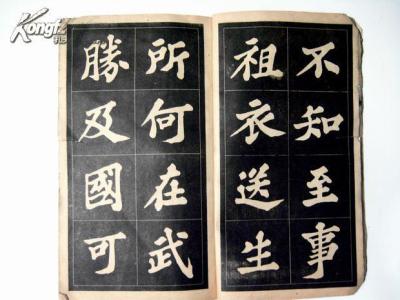 不知至事
祖衣送生
所何在武
勝及國可
Kongfz